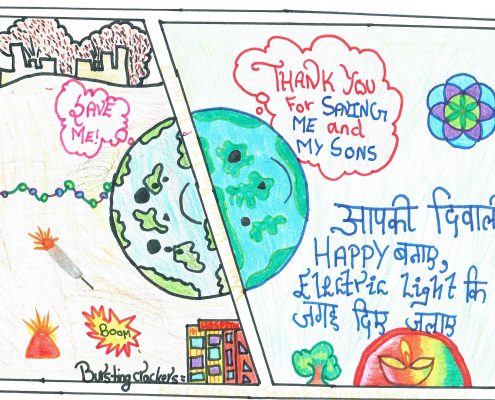 SAVE
ME!
BOOM
Bursting crackers =
HOSPITAL
THANK YOU
For SAVING
ME and
MY SONS
आपकी दिवाली
HAPPY बनाए,
Electric Light कि
जगह दिए जलाए